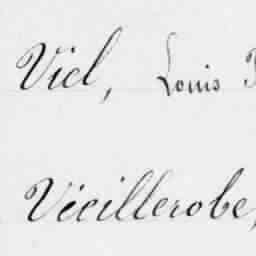 Viel, Louis
Vieillerobe,